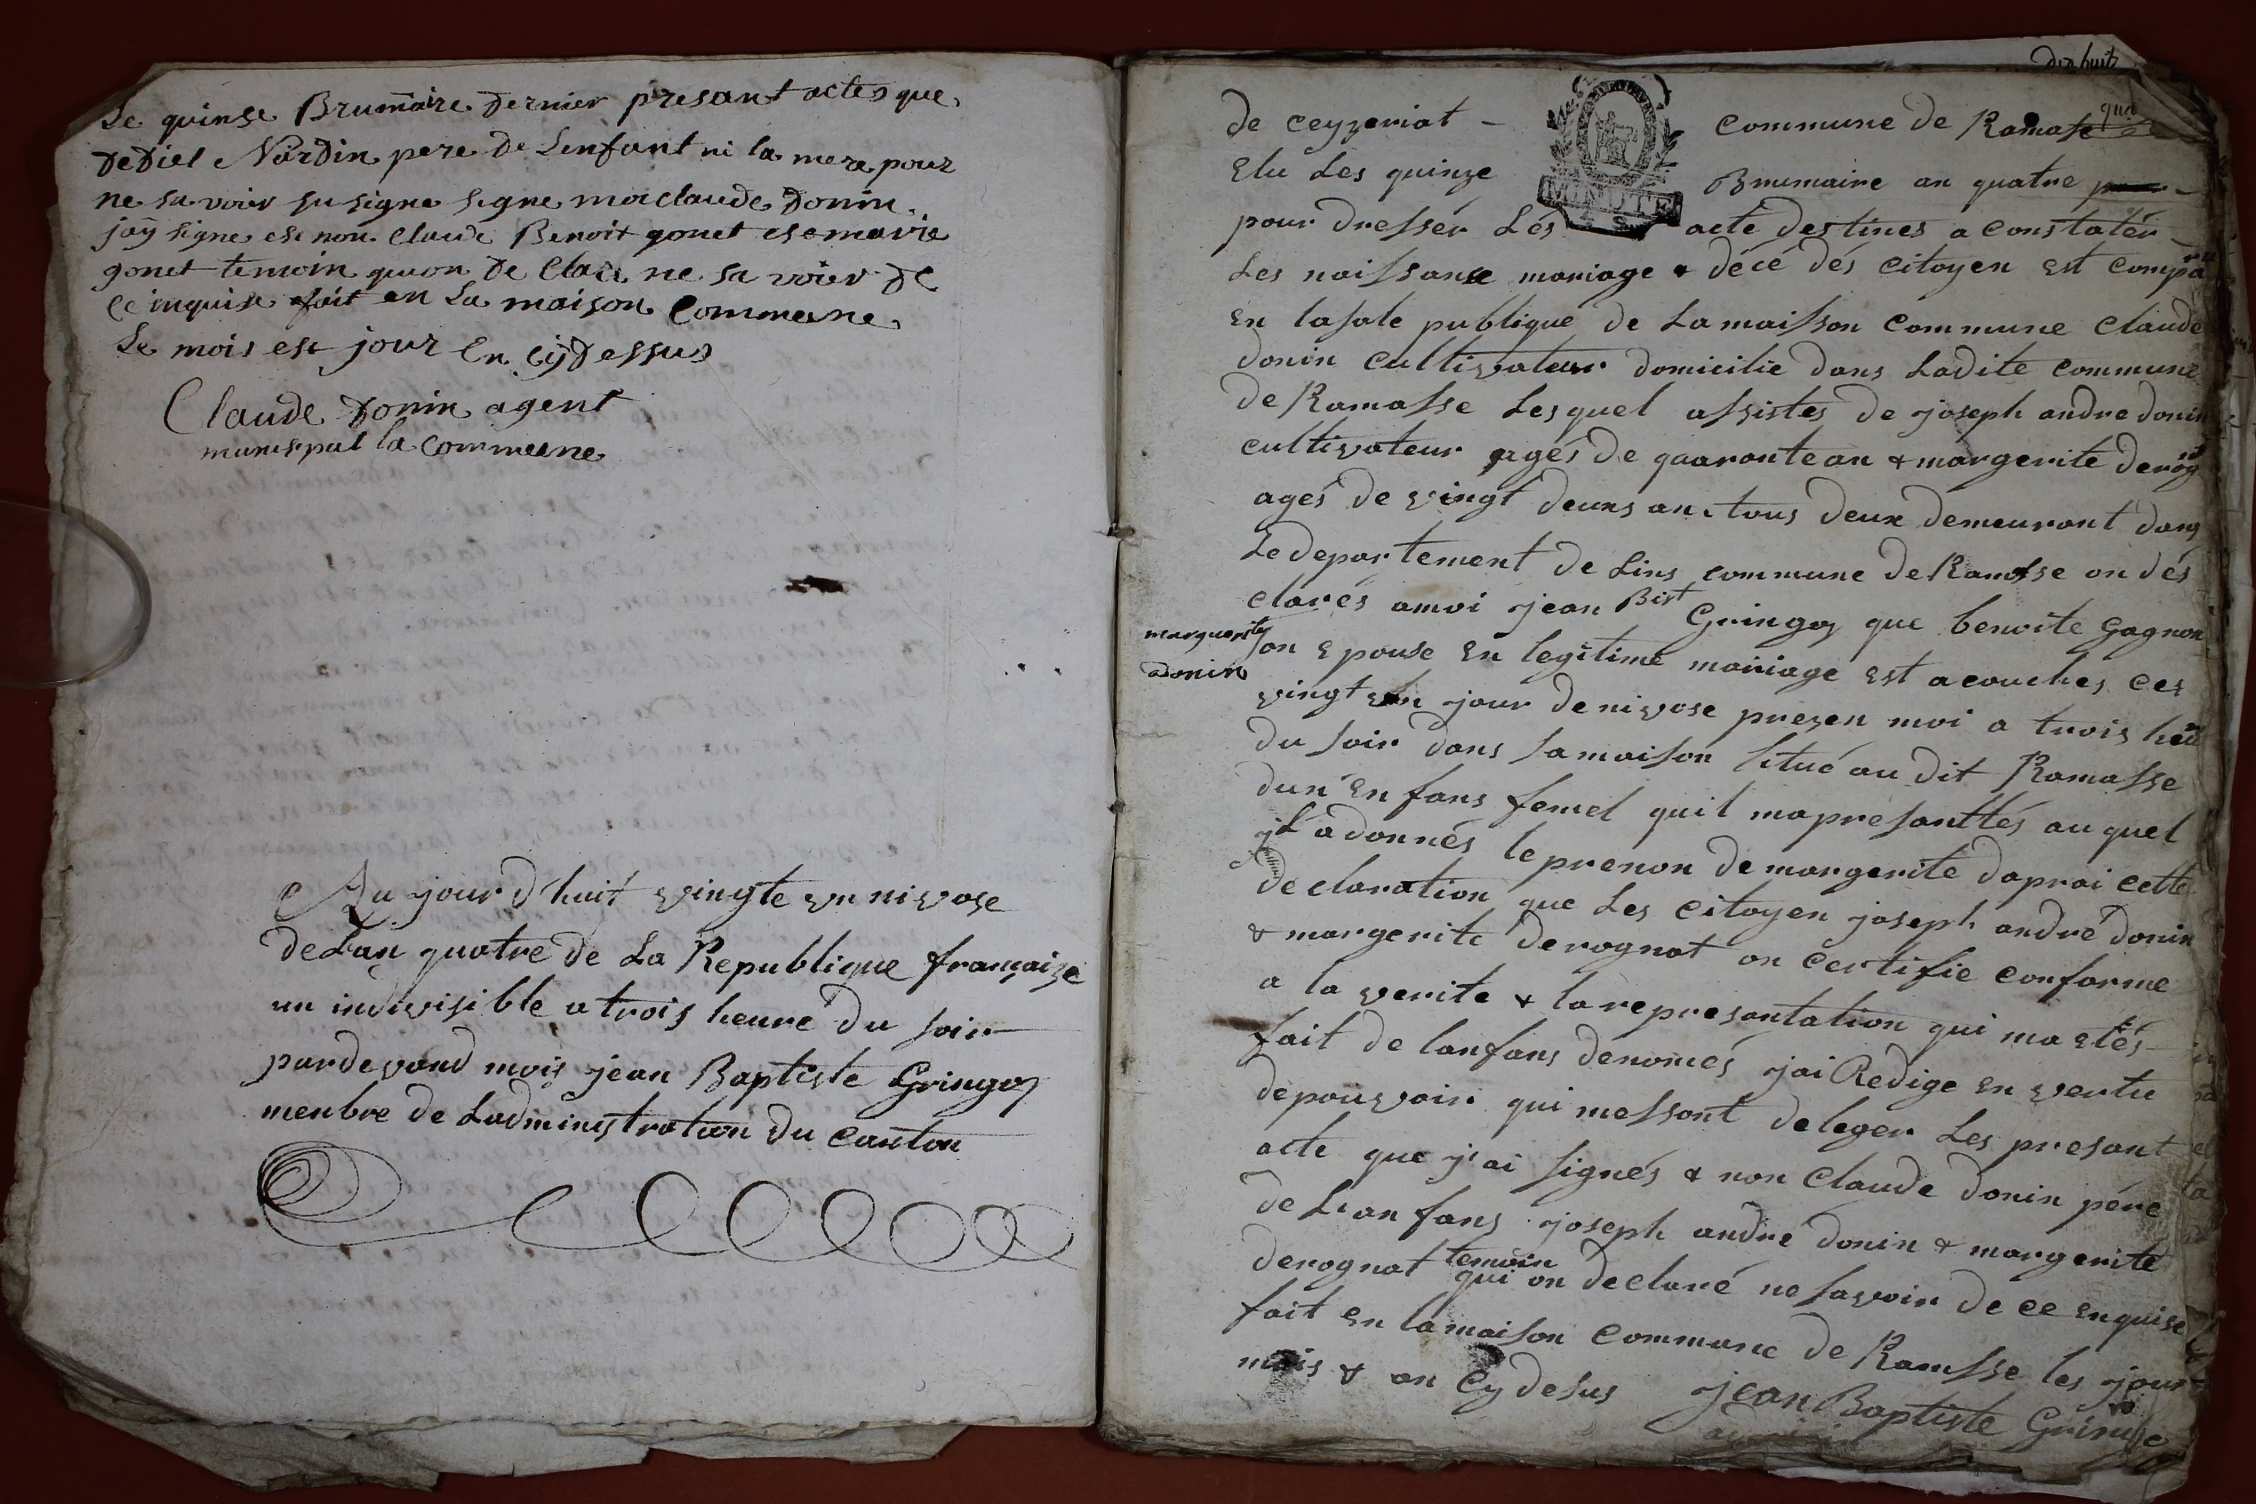 Le quinse Brumaire dernier presant actes que
dediel Nardin pere de Lenfant ni la mere pour
ne savoir su signe signe moi claude Donin
jay signe est non Claude Benoit gonet est marie
gonet temoin quon de Clare ne sa voier de
Ce inquise fait en La maison Commeune
Le mois est jour en cy Dessus
Claude Donin agent
munispal la Commeune
Au jour d'huit vingte un nivose
de Lan quatre de La Republique françaize
un indivisible a trois heure du soir
pardevand mois jean Baptiste Gringoz
menbre de Ladministration du canton
dix huit
de ceyzeriat - commune de Ramase
Elu Les quinze Brumaire an quatre
MINUTE
pour dressér Lés acte destines a constatér
Les naissanse mariage & décé dés citoyen est compa
en lasale publique de La maisson commune Claude
donin cultivateur domicilie dans Ladite commune
de Ramasse Lesquel assistes de joseph andre donin
cultivateur agés de quaronte an & margerite derog
agés de vingt deuxs an tous deux demeuront dans
Le departement de Lins commune de Ramasse on dés
clarés amoi jean Bist Gringoz que benoite Gagnon
marguerite
donin
son epouse en legitime mariage est acouches ces
vingt un jour de nivose prezen moi a trois heu
du soir dans sa maison situé au dit Ramasse
dun enfans femel quil mapresanttés auquel
jl a donnés le prenon de margerite daprai cette
declaration que Les citoyen joseph andré donin
& margerite derognat on certifie conforme
a la verite & la represantation qui ma etés
fait de lanfans denomés jai Redige en vertu
de pouvoir qui messont deleger Les presant
acte que j'ai signés & non Claude donin pére
de Lanfans joseph andre donin & margerite
derognat temoin qui on declaré ne savoir de ce enquise
fait en la maison commune de Ramasse les jour
mois & an Cy desus jean Baptiste Gringoz